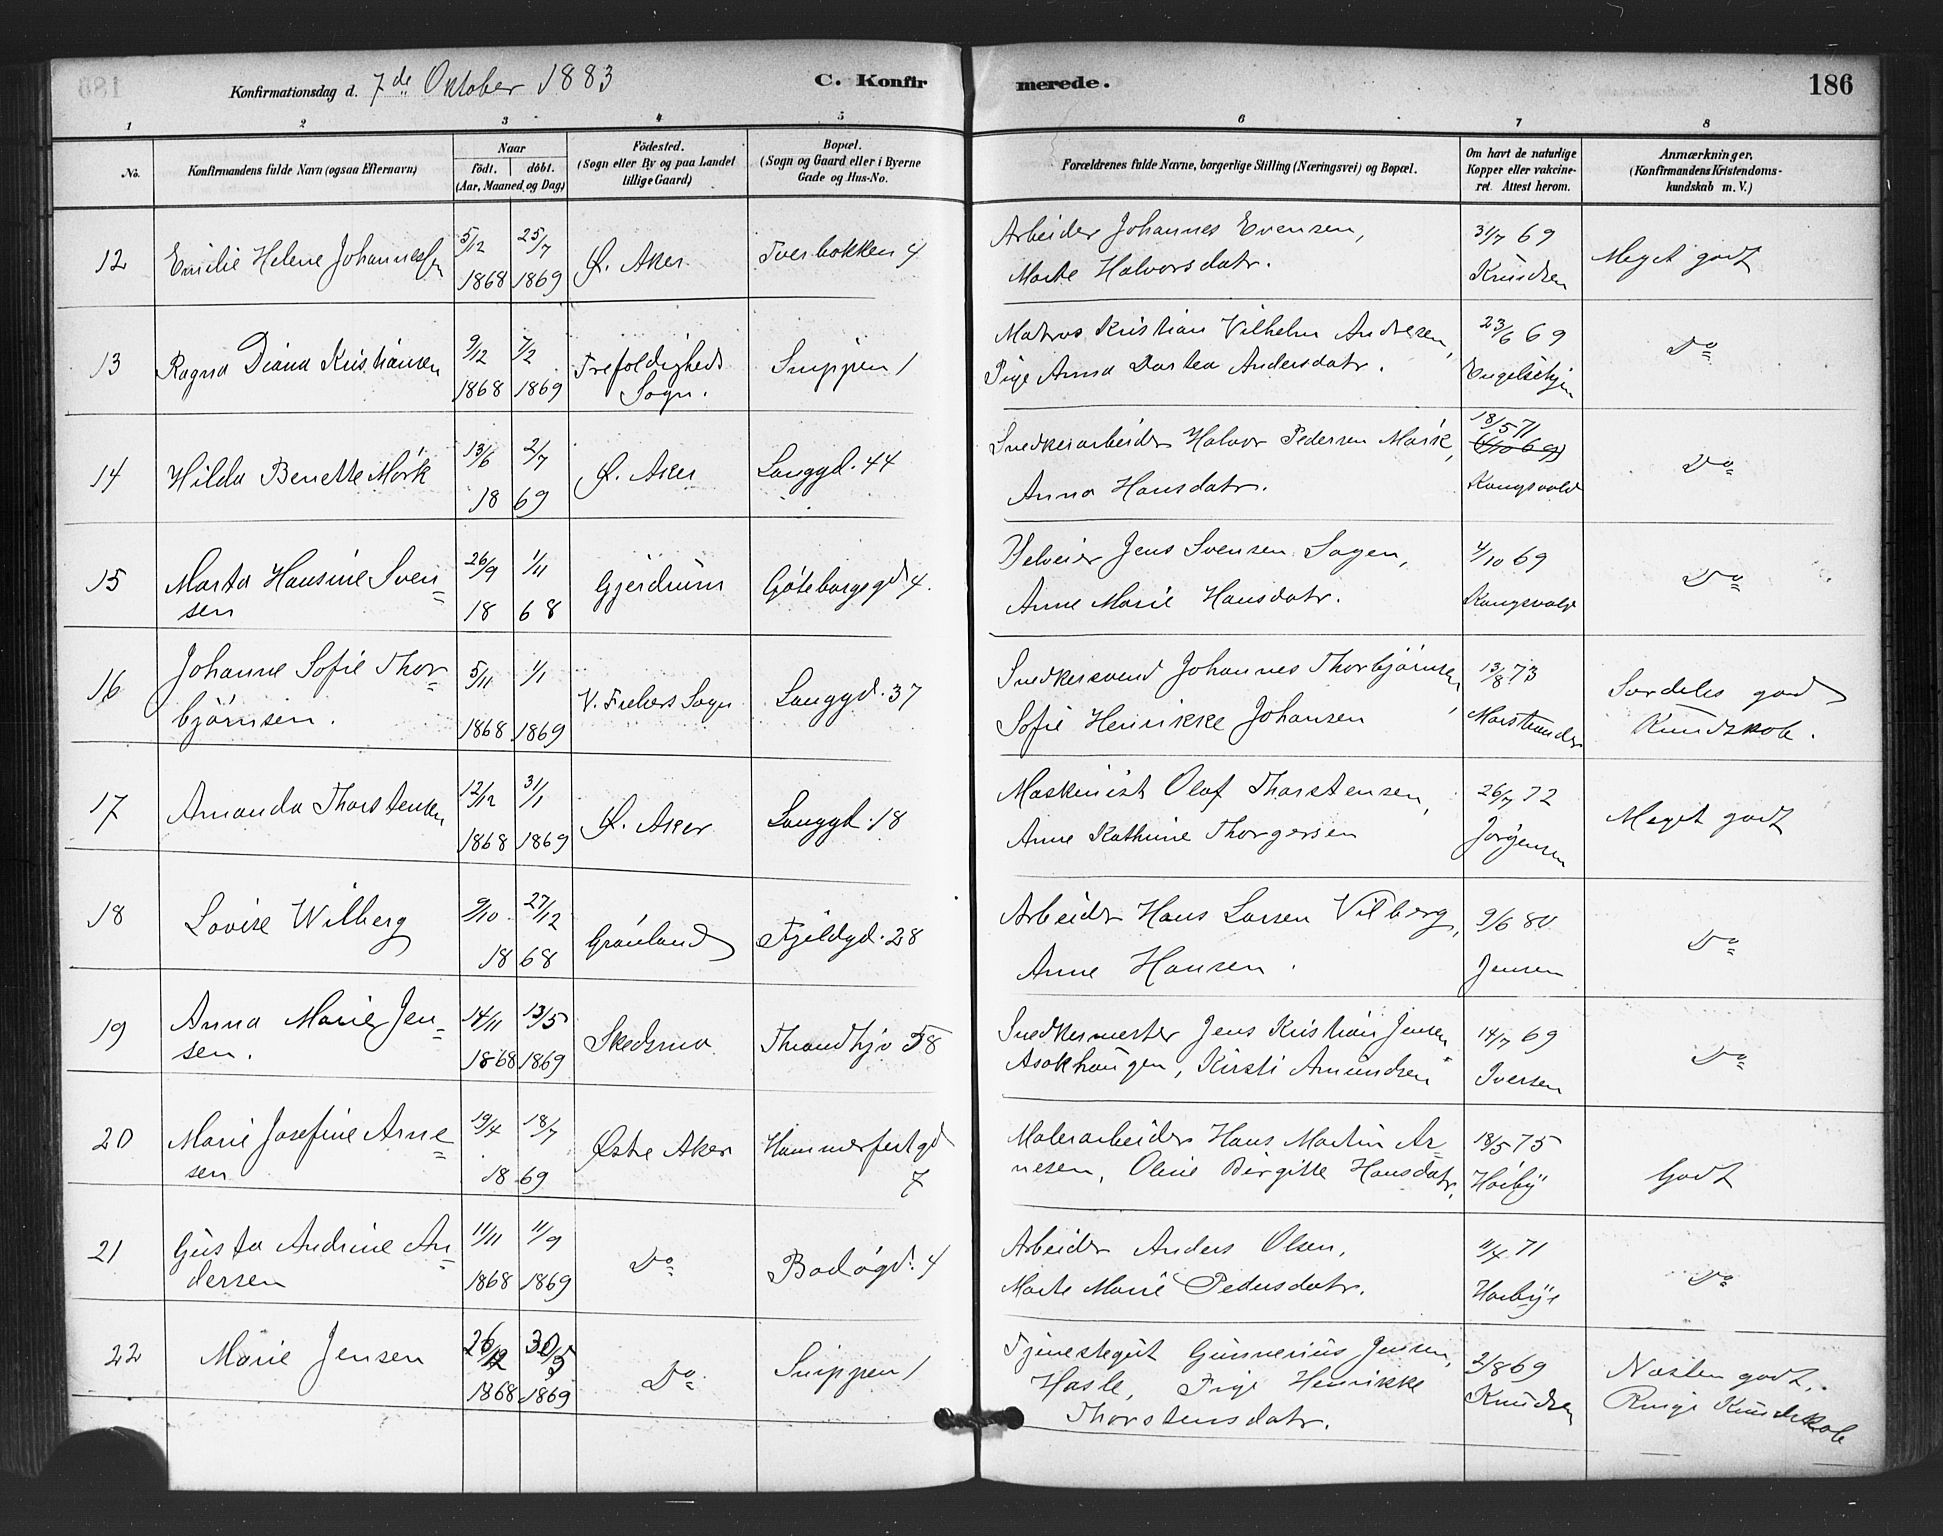 Konfirmationsdag d. 7de Oktober 1883
C. Konfirmerede.
186
1 2 3 4 5 6 7 8
No.
Konfirmandens fulde Navn (ogsaa Efternavn)
Naar
födt. döbt.
(Aar, Maaned og Dag)
Födested.
(Sogn eller By og paa Landet
tillige Gaard)
Bopæl.
(Sogn og Gaard eller i Byerne
Gade og Hus-No.
Forældrenes fulde Navne, borgerlige Stilling (Næringsvei) og Bopæl.
Om havt de naturlige
Kopper eller vakcine-
ret. Attest herom.
Anmærkninger.
(Konfirmandens Kristendoms-
kundskab m. V.)
12 Emilie Helene Johannessen 5/12 1868 25/7 1869 Ø. Aker Tverbakken 4
Arbeider Johannes Evensen,
Marte Halvorsdatr.
31/7 69
Knudsen
Meget godt
13 Ragna Diana Kristiansen 9/12 1868 7/2 1869 Trefoldigheds
Sogn.
Snippen 1
Matros Kristian Vilhelm Andresen,
Pige Anna Dortea Andersdatr.
23/6 69
Engelschjøn
Do
14 Hilda Benette Mørk 13/6 2/7 1869 Ø. Aker Langgd. 44
Snedkerarbeider Halvor Pedersen Mørk,
Anna Hansdatr.
18/5 71
Kongsvold
Do
15 Marta Hansine Sven=
sen
26/9 1/11 1868 Gjerdrum Göteborgsgd 4.
Selveier Jens Svensen Sagen,
Anne Marie Hansdatr.
4/10 69
Kongsvold
Do
16 Johanne Sofie Thor=
bjørnsen.
5/11 1868 1/1 1869 V. Frelsers Sogn Langgd. 37
Snedkersvend Johannes Thorbjørnsen,
Sofie Henrikke Johansen
13/8 73
Marstrander
Særdeles god
Kundskab.
17 Amanda Thorstensen 12/12 1868 31/1 1869 Ø. Aker Langgd. 18
Maskinist Olaf Thorstensen,
Anne Kathrine Thorgersen
26/7 72
Jørgensen
Meget godt
18 Lovise Wilberg 9/10 27/12 1868 Grønland Fjeldgd. 28
Arbeider Hans Larsen Vilberg,
Anne Hansen.
9/6 80
Jensen
Do
19 Anna Marie Jen=
sen.
14/11 1868 13/5 1869 Skedsmo Throndhjv 58
Snedkermester Jens Kristian Jensen
Asakhaugen, Kirsti Amundsen
14/7 69
Iversen
Do
20 Marie Josefine Arne=
sen
19/4 18/7 1869 Østre Aker Hammerfestgd
7
Malerarbeider Hans Martin Ar=
nesen, Oline Birgitte Hansdatr.
18/5 75
Høiby
Godt
21 Gusta Andrine An=
dersen
11/11 1868 11/9 1869 Do Bodøgd. 4
Arbeider Anders Olsen,
Marte Marie Pedersdatr.
11/4 71
Høibye
Do
22 Marie Jensen 26/12 1868 30/5 1869 Do Snippen 1
Tjenestegut Gunnerius Jensen,
Hasle, Pige Henrikke
Thorstensdatr.
2/8 69
Knudsen
Næsten godt.
Ringe Kundskab